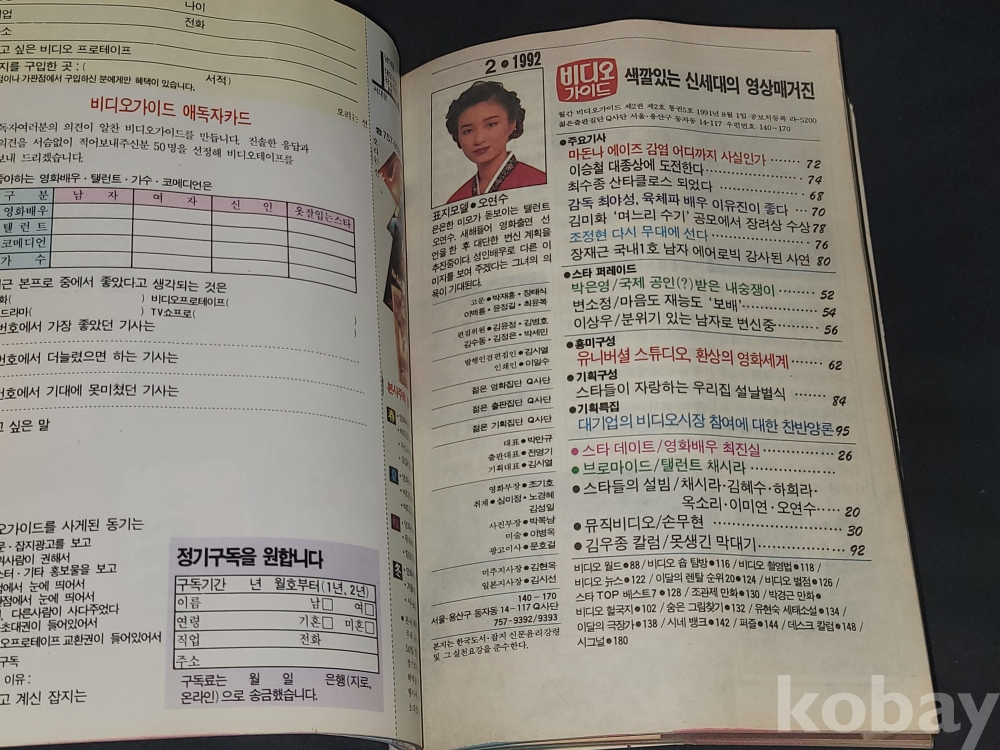 나이
전화
고 싶은 비디오 프로테이프
지를 구입한 곳 : ( 서적)
점이나 가판점에서 구입하신 분에게만 혜택이 있습니다.
비디오가이드 애독자카드
독자여러분의 의견이 알찬 비디오가이드를 만듭니다. 진솔한 응답과
의견을 서슴없이 적어보내주신분 50명을 선정해 비디오테이프를
보내 드리겠습니다.
좋아하는 영화배우 · 탤런트 · 가수 · 코메디언은
구 분 남 자 여 자 신 인 옷잘입는스타
영화배우
탤 런 트
코메디언
가 수
근 본프로 중에서 좋았다고 생각되는 것은
화( ) 비디오프로테이프(
드라마( ) TV쇼프로(
번호에서 가장 좋았던 기사는
번호에서 더늘렸으면 하는 기사는
번호에서 기대에 못미쳤던 기사는
고 싶은 말
오가이드를 사게된 동기는
문 · 잡지광고를 보고
위사람이 권해서
스터 · 기타 홍보물을 보고
점에서 눈에 띄어서
판점에서 눈에 띄어서
, 다른사람이 사다주었다
초대권이 들어있어서
오프로테이프 교환권이 들어있어서
구독
이유 :
고 계신 잡지는
정기구독을 원합니다
구독기간 년 월호부터(1년, 2년)
이름 남□ 여□
연령 기혼□ 미혼□
직업 전화
주소
구독료는 월 일 은행(지로,
온라인)으로 송금했습니다.
2 ● 1992
비디오
가이드
색깔있는 신세대의 영상매거진
월간 비디오가이드 제2권 제2호 통권5호 1991년 8월 1일 공보처등록 라-5200
젊은출판집단 Q사단 서울·용산구 동자동 14-117 우편번호 140-170
표지모델●오연수
은은한 미모가 돋보이는 탤런트
오연수. 새해들어 영화출연 선
언을 한 후 대단한 변신 계획을
추진중이다. 성인배우로 다른 이
미지를 보여 주겠다는 그녀의 의
욕이 기대된다.
고문●박재홍·장태식
이백룡·윤정길·최윤복
편집위원●김윤정·김범호
김수동·김정은·박세민
발행인겸편집인●김시열
인쇄인●이일수
젊은 영화집단 Q사단
젊은 출판집단 Q사단
젊은 기획집단 Q사단
대표●박만규
출판대표●전명기
기획대표●김시열
영화부장●조기호
취재●심미정·노경혜
김성일
사진부장●박목남
미술●이병옥
광고이사●문호걸
미주지사장●김현옥
일본지사장●김시선
140-170
서울·용산구 동자동 14-117 Q사단
757-9392/9393
본지는 한국도서·잡지 신문윤리강령
및 그 실천요강을 준수한다.
●주요기사
마돈나 에이즈 감염 어디까지 사실인가 ······· 72
이승철 대종상에 도전한다 ······· 74
최수종 산타클로스 되었다 ······· 68
감독 최야성, 육체파 배우 이유진이 좋다 ··· 70
김미화 '며느리 수기' 공모에서 장려상 수상 78
조정현 다시 무대에 선다 ······· 76
장재근 국내1호 남자 에어로빅 강사된 사연 80
●스타 퍼레이드
박은영/국제 공인(?)받은 내숭쟁이 ······· 52
변소정/마음도 재능도 '보배' ······· 54
이상우/분위기 있는 남자로 변신중 ······· 56
●흥미구성
유니버셜 스튜디오, 환상의 영화세계 ······· 62
●기획구성
스타들이 자랑하는 우리집 설날별식 ······· 84
●기획특집
대기업의 비디오시장 참여에 대한 찬반양론 95
●스타 데이트/영화배우 최진실 ······· 26
●브로마이드/탤런트 채시라 ·······
●스타들의 설빔/채시라·김혜수·하희라·
옥소리·이미연·오연수 ···· 20
●뮤직비디오/손무현 ······· 30
●김우종 칼럼/못생긴 막대기 ······· 92
비디오 월드●88/비디오 숍 탐방●116/비디오 촬영법●118/
비디오 뉴스●122/이달의 렌탈 순위20●124/비디오 벌점●126/
스타 TOP 베스트7●128/조관제 만화●130/박경근 만화●
비디오 헐국지●102/숨은 그림찾기●132/유현숙 세태소설●134/
이달의 극장가●138/시네 뱅크●142/퍼즐●144/데스크 칼럼●148/
시그널●180
kobay